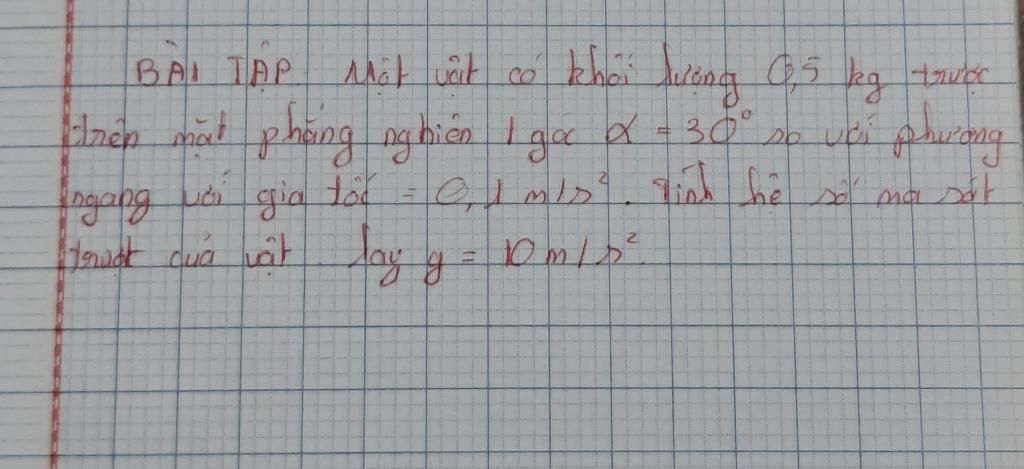 BÀI TẬP Một vật có khối lượng 0,5 kg trượt
trên mặt phẳng nghiên 1 góc α = 30° so với phương
ngang với gia tốc = 0,1 m/s². Tính hệ số ma sát
trượt của vật lay g = 10 m/s².